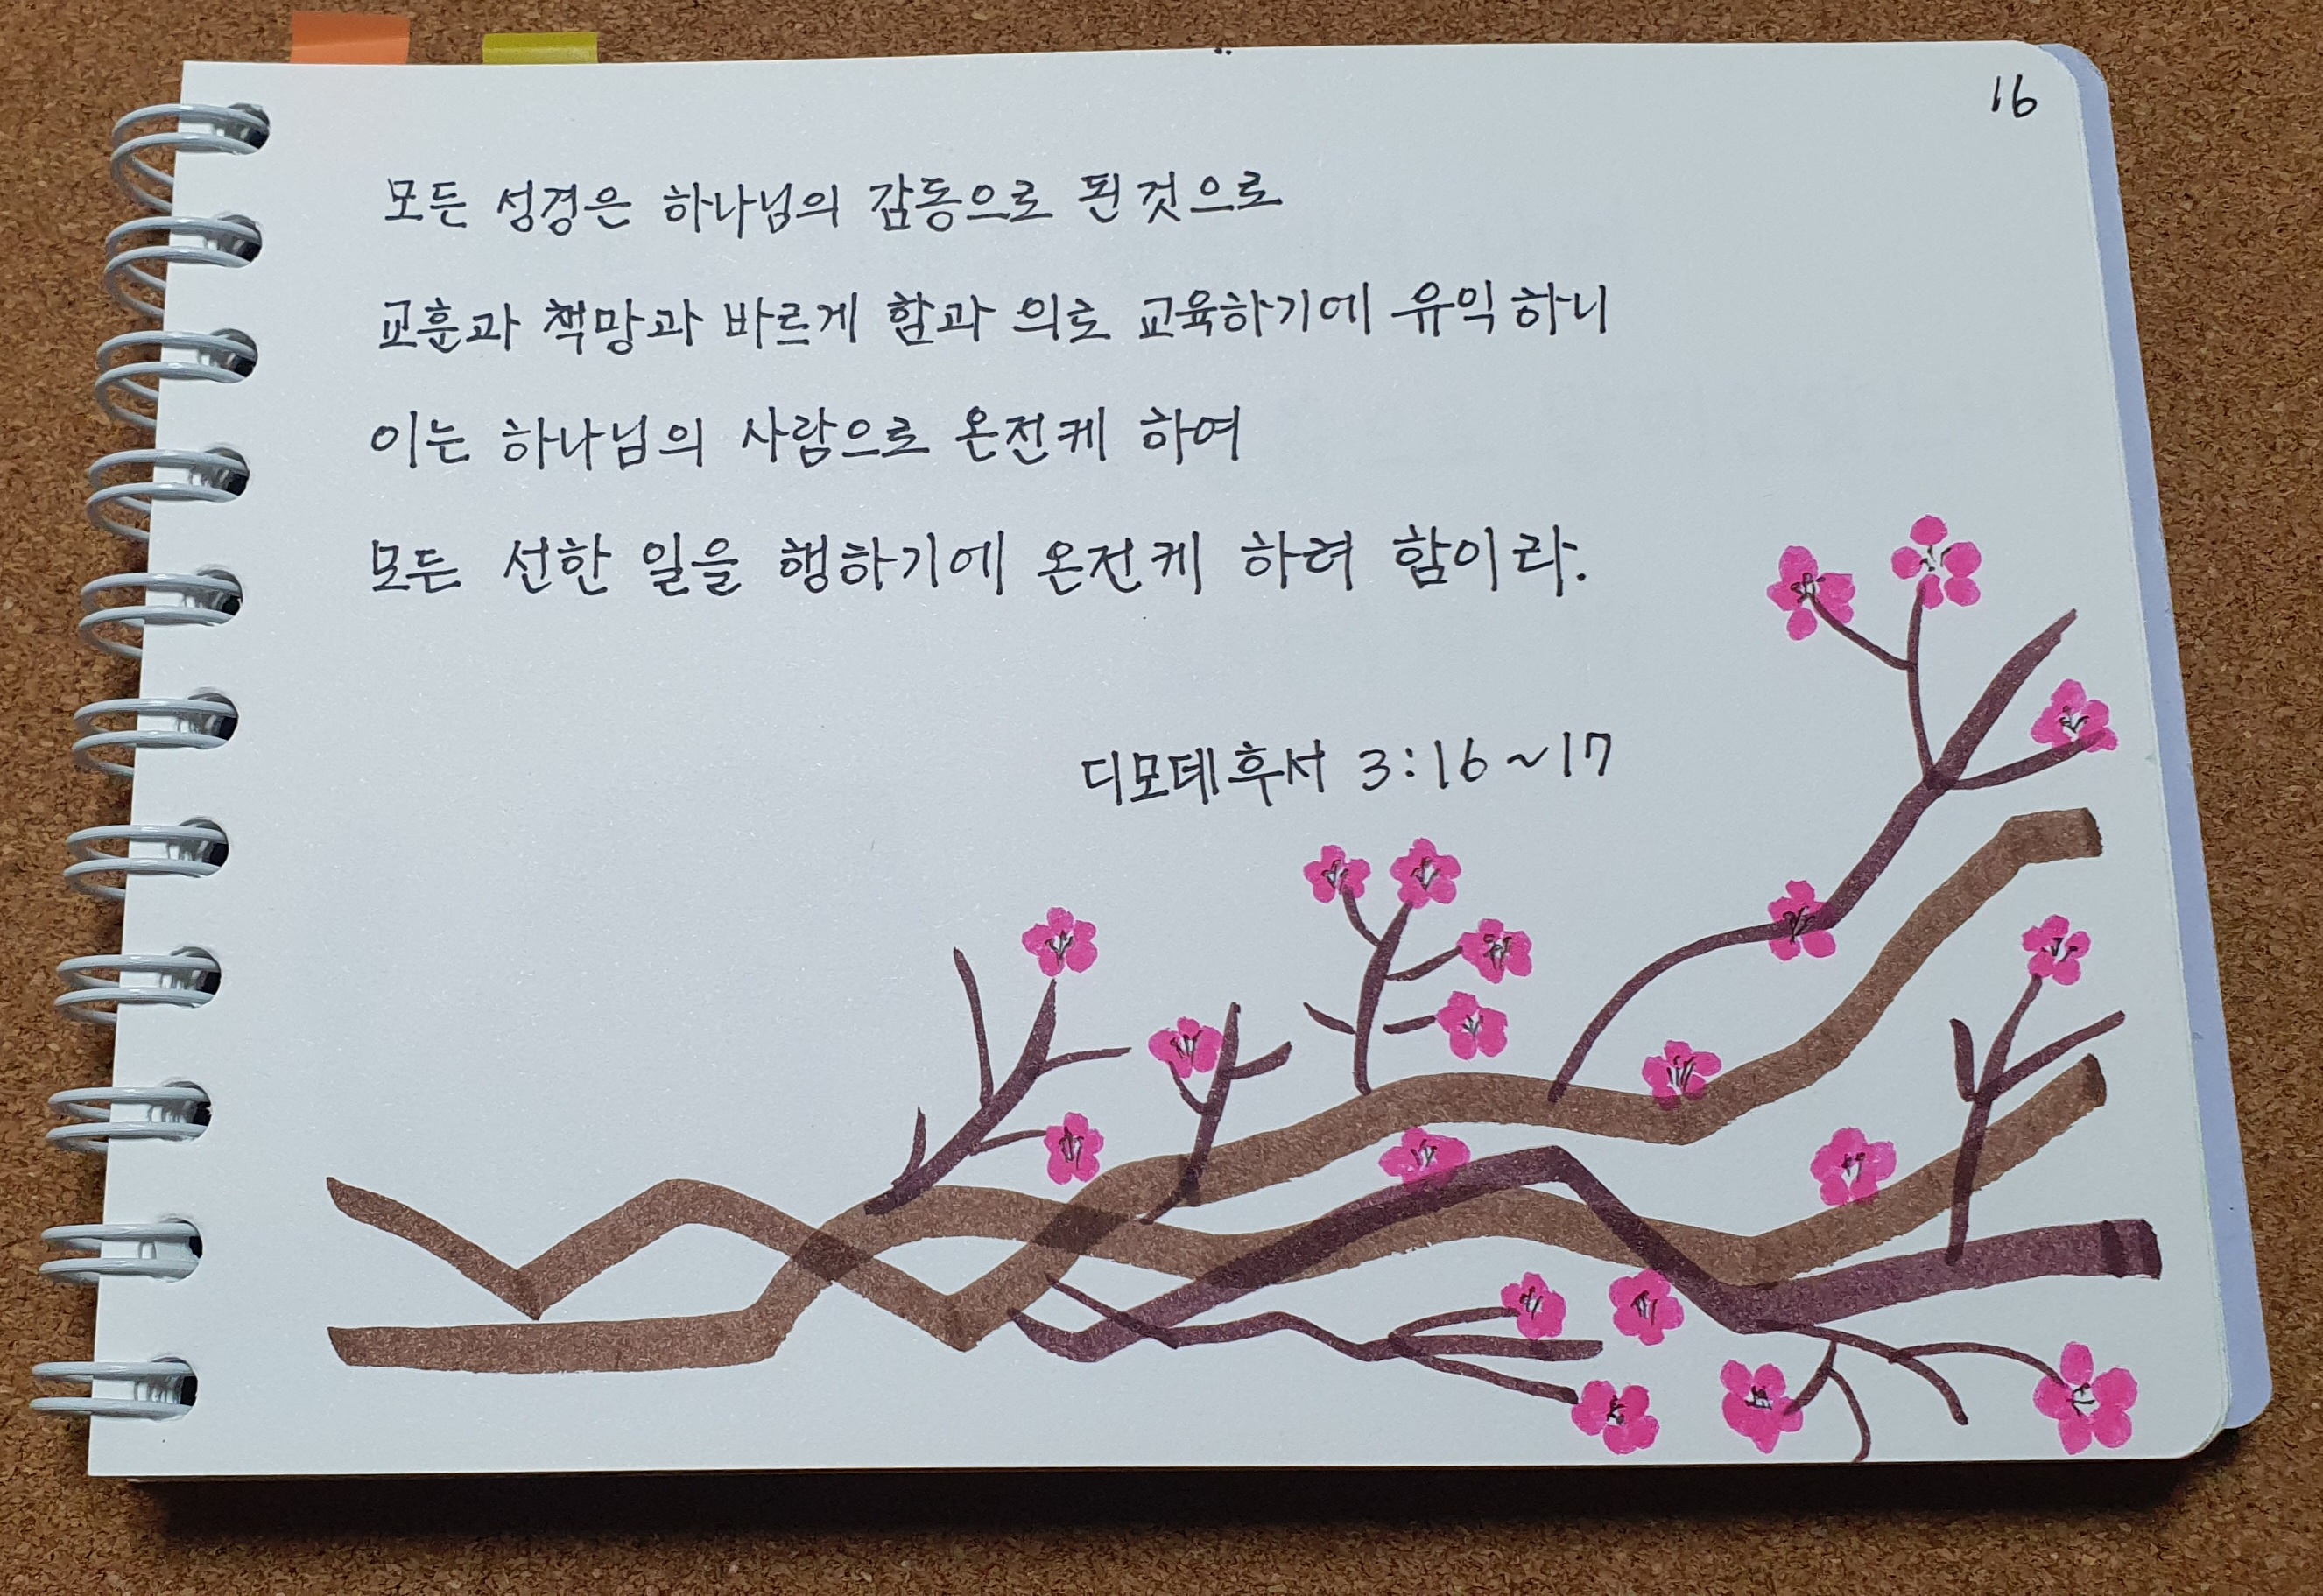 16
모든 성경은 하나님의 감동으로 된 것으로
교훈과 책망과 바르게 함과 의로 교육하기에 유익하니
이는 하나님의 사람으로 온전케 하여
모든 선한 일을 행하기에 온전케 하려 함이라.
디모데후서 3:16~17